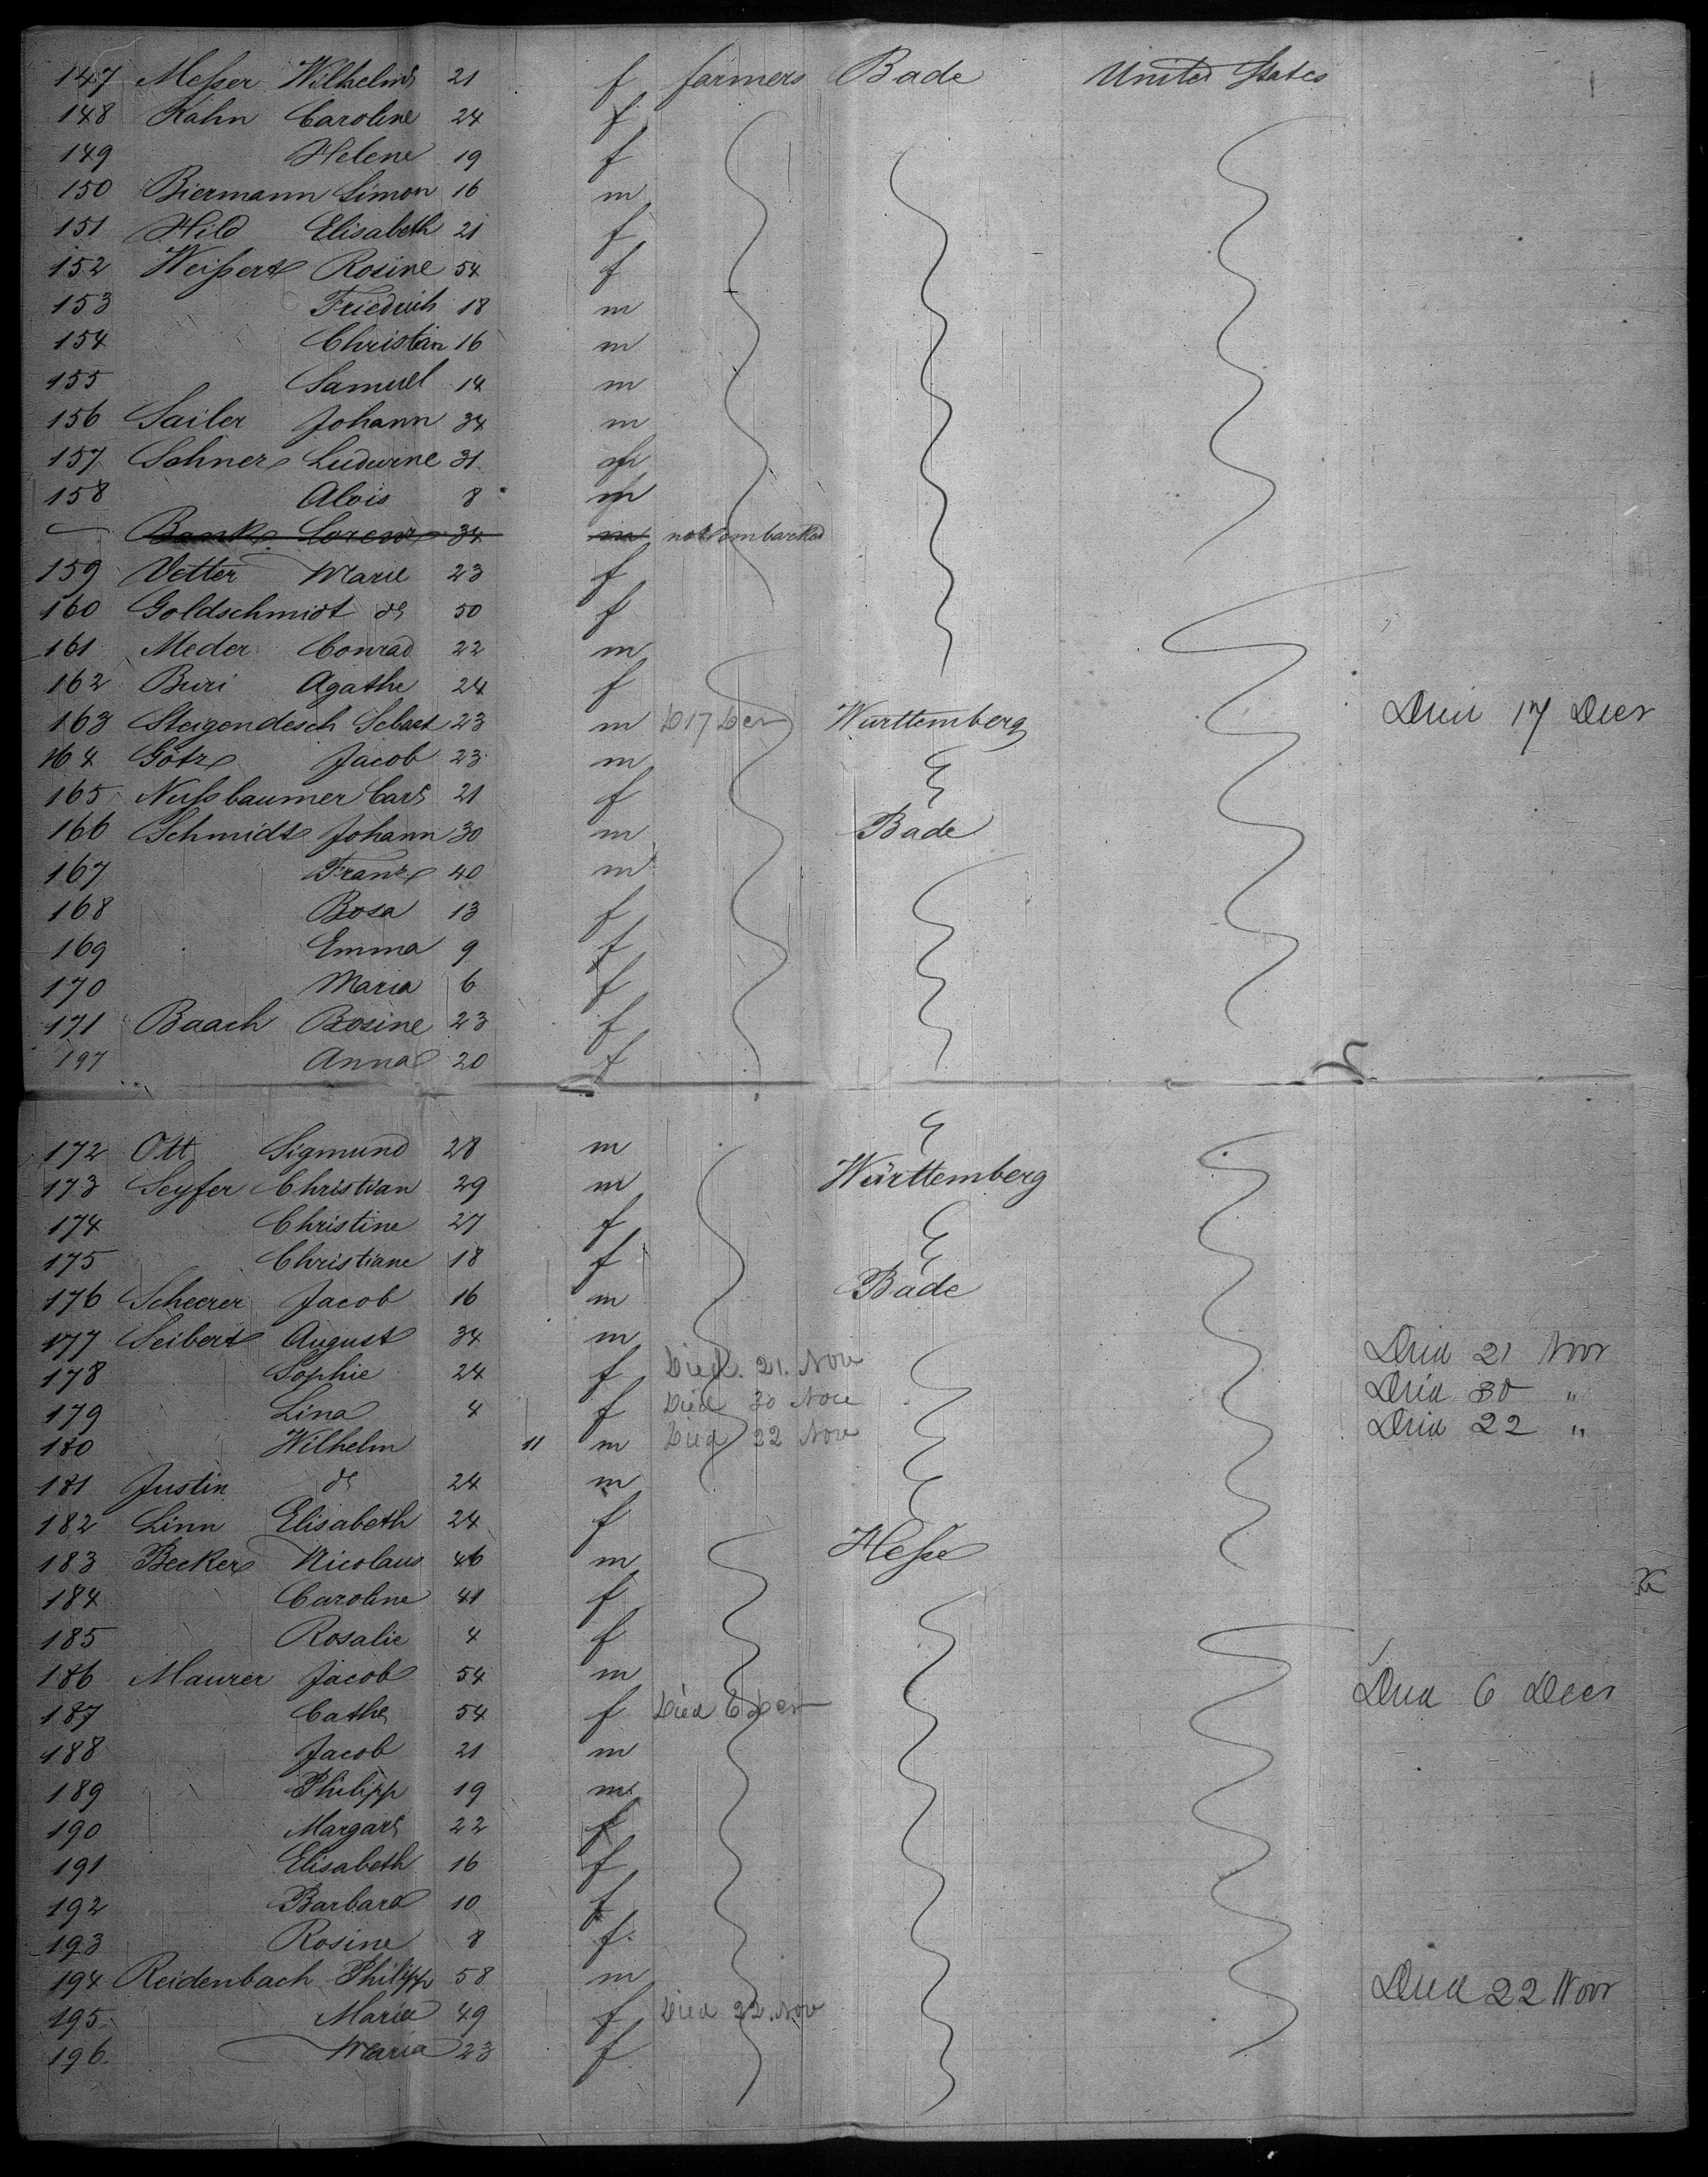 147 Meßer Wilhelm͞e 21 f farmers Bade United States
148 Kahn Caroline 24 f
149 Helene 19 f
150 Biermann Simon 16 m
151 Hild Elisabeth 21 f
152 Weißert Rosine 54 f
153 Friedrich 18 m
154 Christian 16 m
155 Samuel 14 m
156 Sailer Johann 34 m
157 Sohner Ludwine 31
158 Alois 8 m
Bank Lorenz 34 m not embarked
159 Vetter Marie 23 f
160 Goldschmidt do 50 f
161 Meder Conrad 22 m
162 Buri Agathe 24 f
163 Steigendesch Sebast 23 m D 17 Decr Wurttemberg Died 17 Decr
164 Götz Jacob 23 m
165 Nußbaumer Carl 21 f
166 Schmidt Johann 30 m Bade
167 Franz 40 m
168 Rosa 13 f
169 Emma 9 f
170 Maria 6 f
171 Baach Rosine 23 f
197 Anna 20 f
172 Ott Sigmund 28 m
173 Seyfer Christian 29 m Württemberg
174 Christine 27 f
175 Christiane 18 f
176 Scheerer Jacob 16 m Bade
177 Seibert August 34 m
178 Sophie 24 f Died. 21. Nov Died 21 Novr
179 Lina 4 f Died 30 Nov Died 30 "
180 Wilhelm 11 m Died 22 Nov Died 22 "
181 Justin do 24 m
182 Linn Elisabeth 24 f
183 Becker Nicolaus 46 m Heße
184 Caroline 41 f
185 Rosalie 4 f
186 Maurer Jacob 54 m
187 Cathe 54 f Died 6 Decr Died 6 Decr
188 Jacob 21 m
189 Philipp 19 m
190 Margart 22 f
191 Elisabeth 16 f
192 Barbara 10 f
193 Rosine 8 f
194 Reidenbach Philipp 58 m
195 Maria 49 f Died 22. Nov Died 22 Novr
196 Maria 23 f